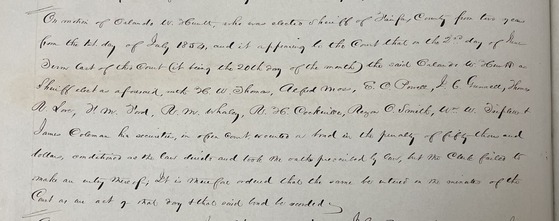 On motion of Orlando W. Huntt, who was elected Sheriff of Fairfax County for two years
from the 1st day of July 1854, and it appearing to the Court that on the 2nd day of June
Term last of this Court (it being the 20th day of the month) the said Orlando W. Huntt as
Sheriff elect as aforesaid, with H. W. Thomas, Alfred Moss, E. C. Powell, J. C. Gunnell, Thomas
R. Love, W. M. Whaley, R. H. Cockerille, C. Smith, Wm. W.
James Coleman his securities, in open court, executed a bond in the penalty of fifty thousand
dollars, conditioned as the law directs and took the oaths prescribed by law, but the Clerk failed to
make an entry thereof; It is therefore ordered that the same be entered in the minutes of the
Court as an act of that day & that said bond be recorded;